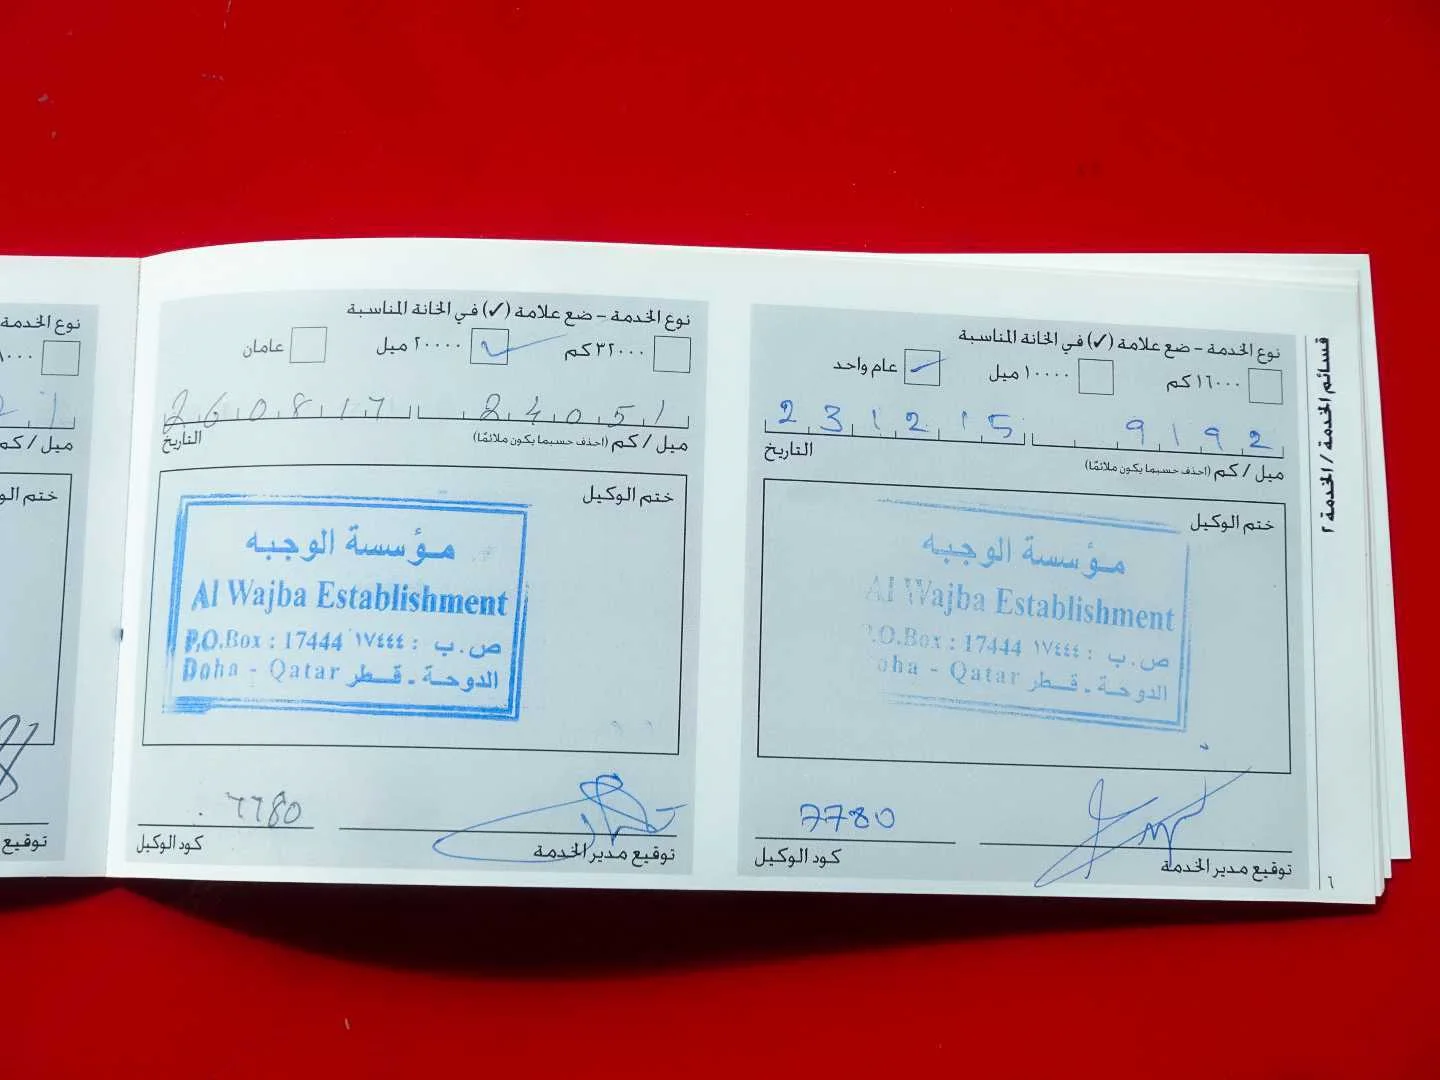 قسائم الخدمة / الخدمة ٢
نوع الخدمة - ضع علامة (✓) في الخانة المناسبة
١٦٠٠٠ كم ١٠٠٠٠ ميل عام واحد
231215 9192
ميل / كم (احذف حسبما يكون ملائمًا) التاريخ
ختم الوكيل
مؤسسة الوجبه
Al Wajba Establishment
P.O.Box : 17444 ص.ب : ١٧٤٤٤
Doha - Qatar الدوحة - قطر
7780
توقيع مدير الخدمة كود الوكيل
٦
نوع الخدمة - ضع علامة (✓) في الخانة المناسبة
٣٢٠٠٠ كم ٢٠٠٠٠ ميل عامان
260817 24051
ميل / كم (احذف حسبما يكون ملائمًا) التاريخ
ختم الوكيل
مؤسسة الوجبه
Al Wajba Establishment
P.O.Box : 17444 ص.ب : ١٧٤٤٤
Doha - Qatar الدوحة - قطر
7780
توقيع مدير الخدمة كود الوكيل
نوع الخدمة
ميل / كم
ختم
توقيع